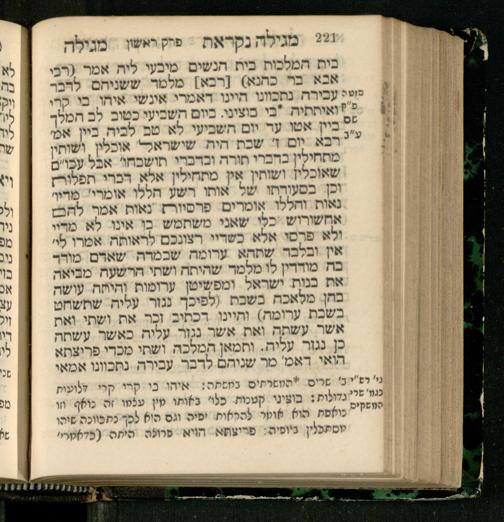 221 מגילה נקראת פרק ראשון מגילה
בית המלכות בית הנשים מיבעי ליה אמר (רבי
אבא בר כהנא) [רבא] מלמד ששניהם לדבר
עבירה נתכוונו היינו דאמרי אינשי איהו בי קרי
ואיתתיה *בי בוציני. ביום השביעי כטוב לב המלך
ביין אטו עד יום השביעי לא טב לביה ביין אמ'
רבא יום ז' שבת היה שישראל אוכלין ושותין
מתחילין בדברי תורה ובדברי תושבחו' אבל עכו"ם
שאוכלין ושותין אין מתחילין אלא בדברי תפלות
וכן בסעודתו של אותו רשע הללו אומרי' מדיו'
נאות והללו אומרים פרסיות נאות אמר להם
אחשורוש כלי שאני משתמש בו אינו לא מדיי
ולא פרסי אלא כשדיי רצונכם לראותה אמרו לי'
אין ובלבד שתהא ערומה שבמדה שאדם מודד
בה מודדין לו מלמד שהיתה ושתי הרשעה מביאה
את בנות ישראל ומפשיטן ערומות והיתה עושה
בהן מלאכה בשבת (לפיכך נגזר עליה שתשחט
בשבת ערומה) והיינו דכתיב זכר את ושתי ואת
אשר עשתה ואת אשר נגזר עליה כאשר עשתה
כן נגזר עליה. ותמאן המלכה ושתי מכדי פריצתא
הואי דאמ' מר שניהם לדבר עבירה נתכוונו אמאי
סוטה
פ"ק
שם
ע"ב
ב' שרים *המשרתים במשתה: איהו בי קרי קרי דלועות
גדולות: בוציני קטנות כלו' באותו מין עצמו זה נואף וזו
נואפת הוא אומר להראות יפיה וגם הוא לכך נתכוונה שיהו
מסתכלין ביופיה: פריצתא הויא פרוצה היתה (כדאמרי'